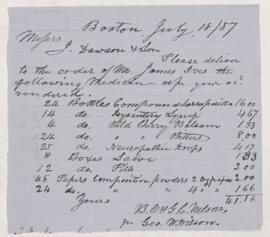 Boston July 18/57
Messrs J. Dawson & Son
Please deliver
to the order of Mr. James Ives the
following Medicin as per your as
rendered.
24 Bottles Compound Sarsaparilla 16.00
14 do. Dysentery Syrup 4.67
4 do. Wild Cherry Balsam 1.33
24 do. " " Bitters 8.00
25 do. Neuropathic Drops 4.17
8 Boxes Salve 1.33
12 do. Pills 2.00
48 Papers Composition powders 2 oz papers 2.00
24 do. " " 4 " " 1.66
Yours 41.16
B.O. & G.C. Wilson
Geo. W. Wilson.